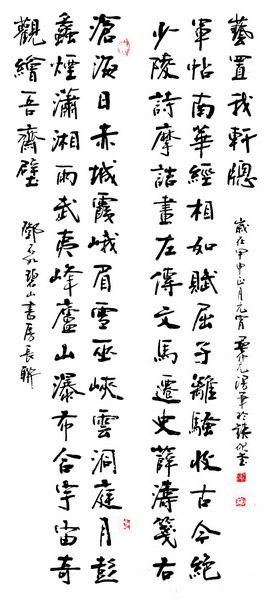 滄海日赤城霞峨眉雪巫峽雲洞庭月彭
蠡煙瀟湘雨武夷峰廬山瀑布合宇宙奇
觀繪吾齋壁
鄧石如碧山書房長聯
少陵詩摩詰畫左傳文馬遷史薛濤箋右
軍帖南華經相如賦屈子離騷收古今絕
藝置我軒牕
歲在甲申正月元宵